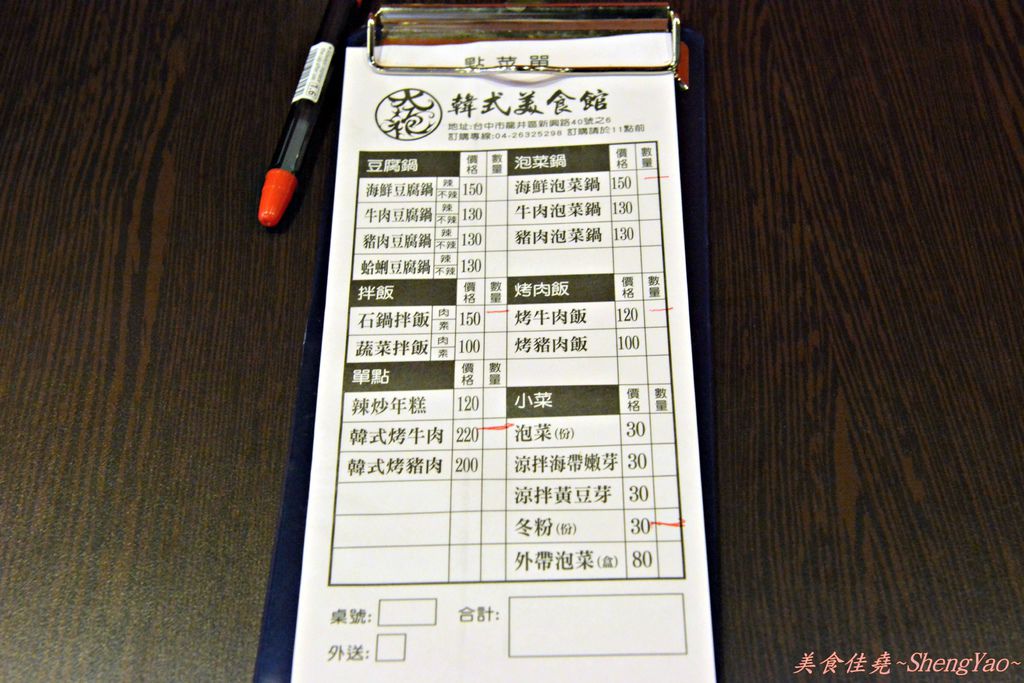 點菜單
大袍
韓式美食館
地址:台中市龍井區新興路40號之6
訂購專線:04-26325298 訂購請於11點前
豆腐鍋 價格 數量 泡菜鍋 價格 數量
海鮮豆腐鍋 辣 不辣 150 海鮮泡菜鍋 150
牛肉豆腐鍋 辣 不辣 130 牛肉泡菜鍋 130
豬肉豆腐鍋 辣 不辣 130 豬肉泡菜鍋 130
蛤蜊豆腐鍋 辣 不辣 130
拌飯 價格 數量 烤肉飯 價格 數量
石鍋拌飯 肉 素 150 烤牛肉飯 120
蔬菜拌飯 肉 素 100 烤豬肉飯 100
單點 價格 數量
辣炒年糕 120 小菜 價格 數量
韓式烤牛肉 220 泡菜(份) 30
韓式烤豬肉 200 涼拌海帶嫩芽 30
涼拌黃豆芽 30
冬粉(份) 30
外帶泡菜(盒) 80
桌號: 合計:
外送:
美食佳堯~ShengYao~